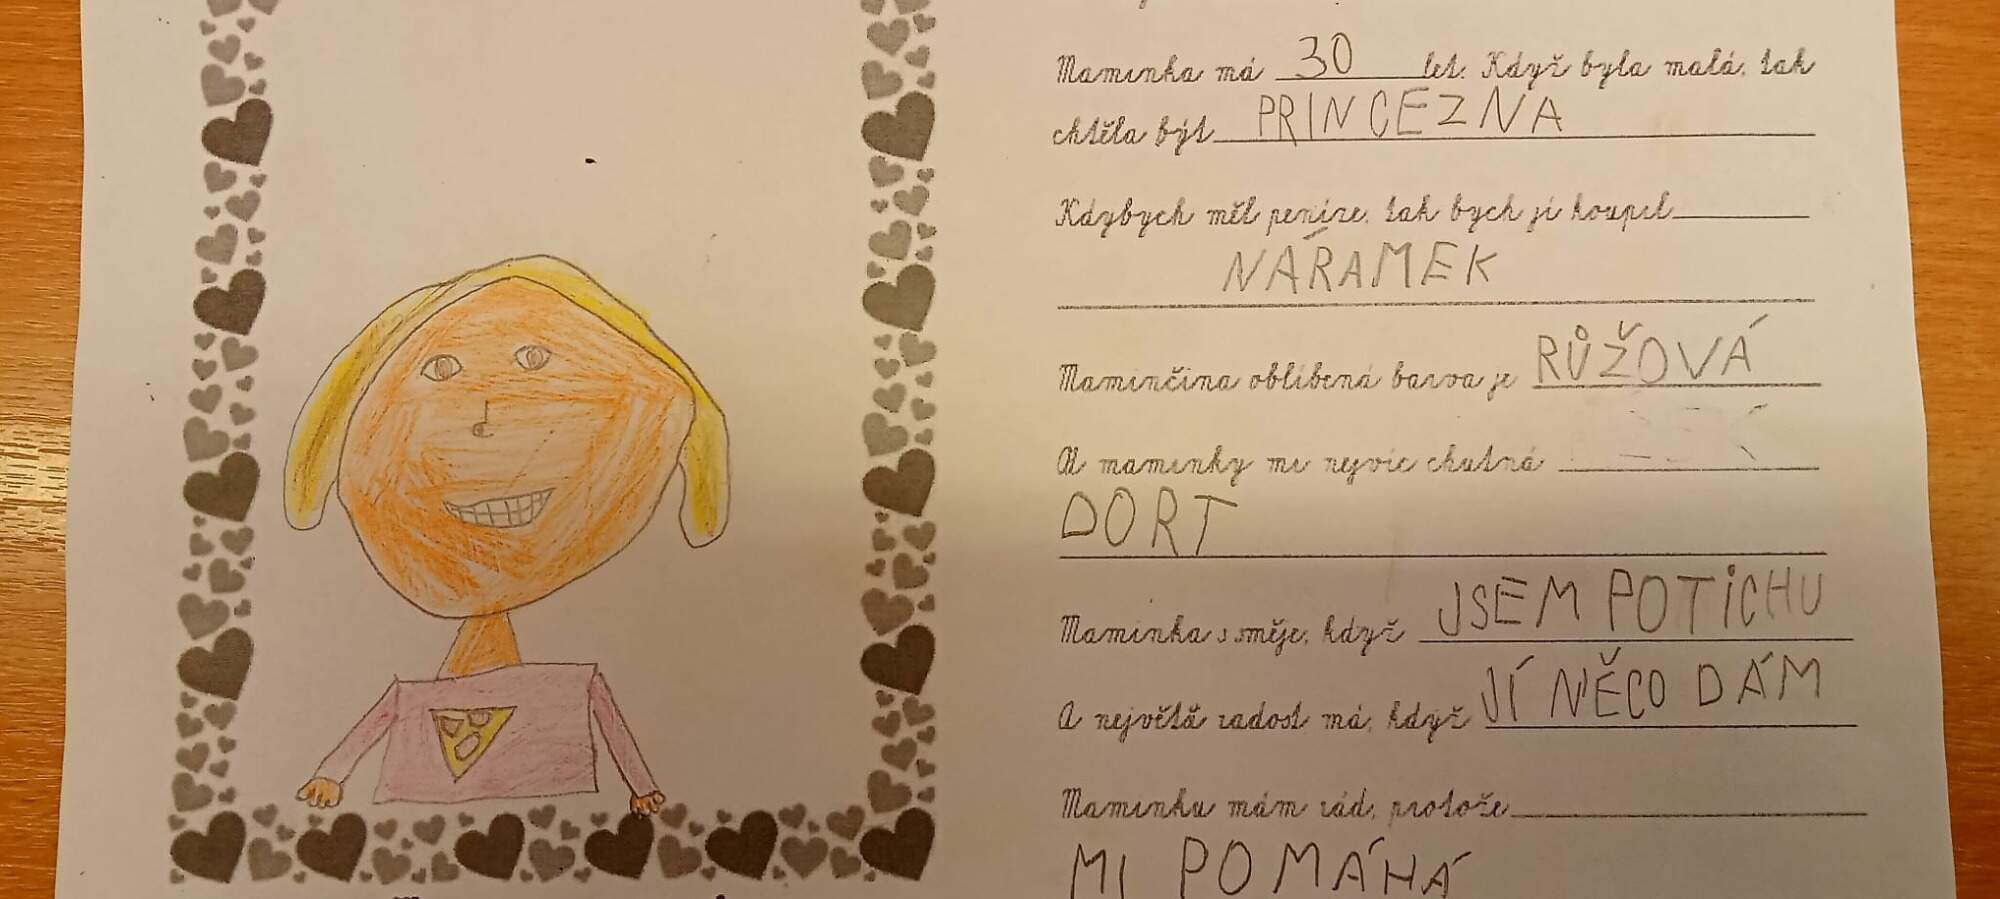 Maminka má 30 let. Když byla malá, tak
chtěla být PRINCEZNA
Kdybych měl peníze, tak bych jí koupil
NÁRAMEK
Maminčina oblíbená barva je RŮŽOVÁ
Od maminky mi nejvíc chutná
DORT
Maminka s směje, když JSEM POTICHU
A největší radost má, když JÍ NĚCO DÁM
Maminku mám rád, protože
MI POMÁHÁ